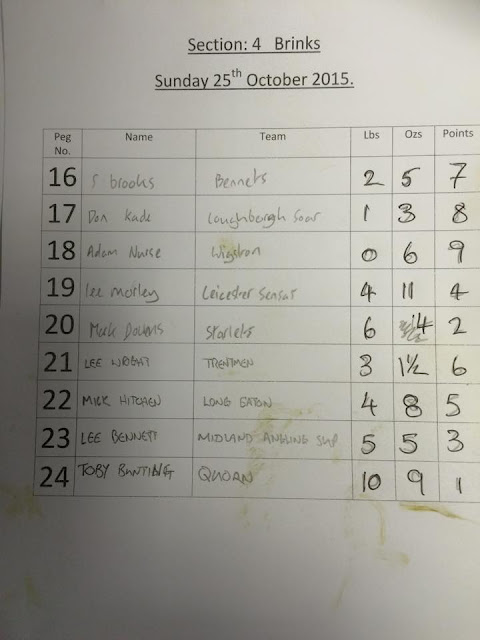 Section: 4 Brinks
Sunday 25th October 2015.
Peg No. Name Team Lbs Ozs Points
16 S brooks Bennets 2 5 7
17 Dan Kade Loughborgh Soar 1 3 8
18 Adam Nurse Wigston 0 6 9
19 lee morley Leicester Sensas 4 11 4
20 Mark Downs Starlets 6 4 2
21 LEE WRIGHT TRENTMEN 3 1½ 6
22 MICK HITCHEN LONG EATON 4 8 5
23 LEE BENNETT MIDLAND ANGLING SUP 5 5 3
24 TOBY BUNTING QUOAN 10 9 1